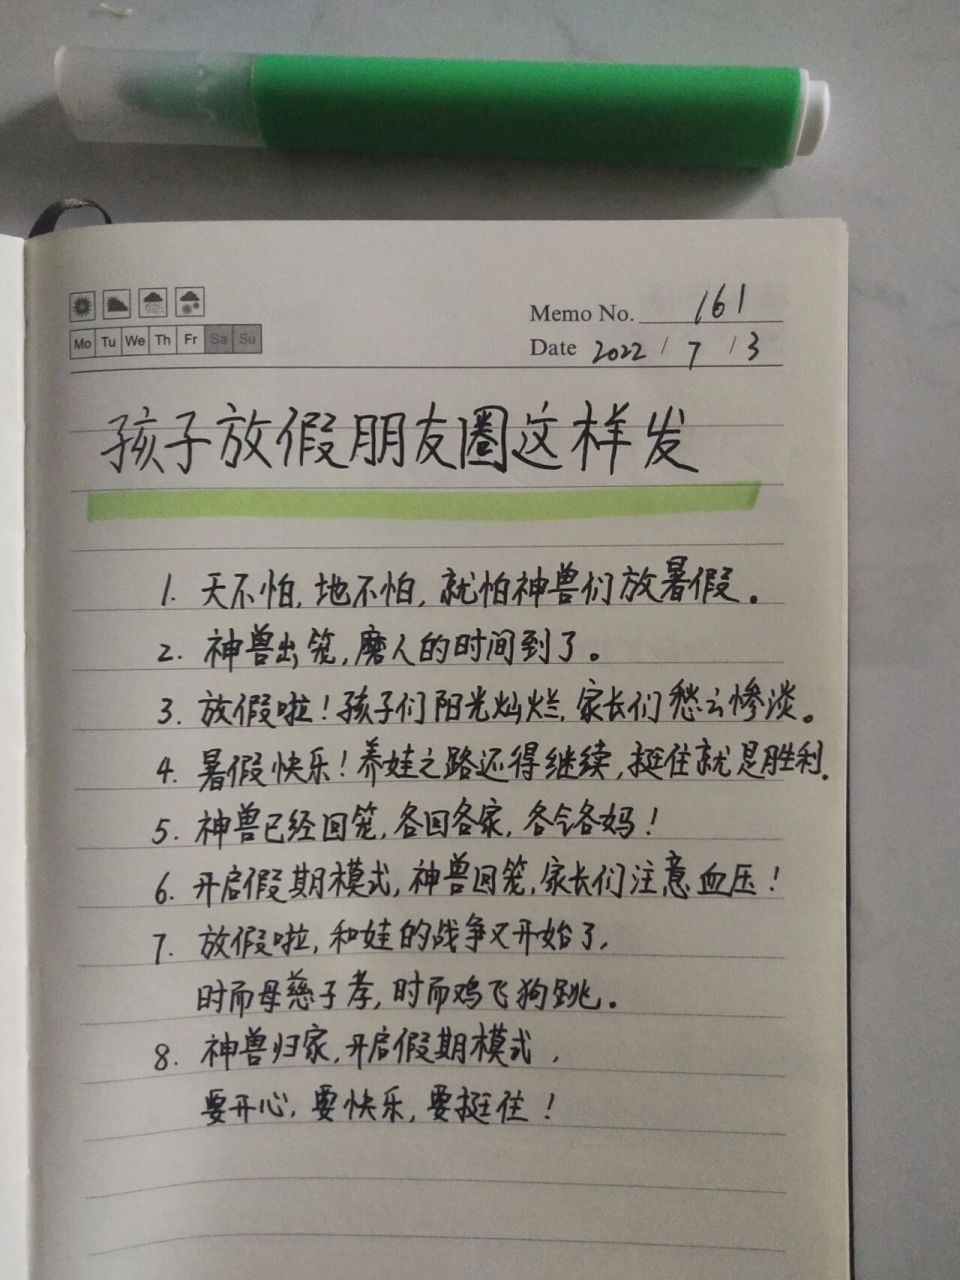 Mo Tu We Th Fr Sa Su
Memo No. 161
Date 2022 / 7 / 3
孩子放假朋友圈这样发
1. 天不怕,地不怕,就怕神兽们放暑假。
2. 神兽出笼,磨人的时间到了。
3. 放假啦!孩子们阳光灿烂,家长们愁云惨淡。
4. 暑假快乐!养娃之路还得继续,挺住就是胜利.
5. 神兽已经回笼,各回各家,各气各妈!
6. 开启假期模式,神兽回笼,家长们注意血压!
7. 放假啦,和娃的战争又开始了,
时而母慈子孝,时而鸡飞狗跳。
8. 神兽归家,开启假期模式,
要开心,要快乐,要挺住!